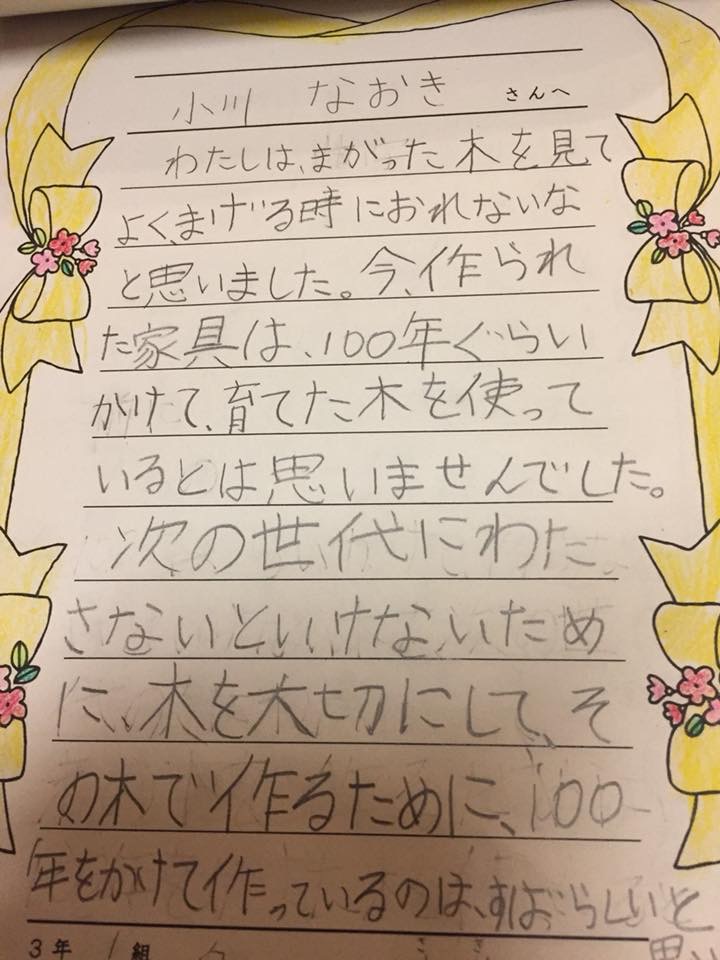 小川 なおき さんへ
わたしは、まがった木を見て
よく、まげる時におれないな
と思いました。今、作られ
た家具は、100年ぐらい
かけて、育てた木を使って
いるとは思いませんでした。
次の世代にわた
さないといけないため
に、木を大切にして、そ
の木で作るために、100
年をかけて作っているのは、すばらしいと
3年 1組